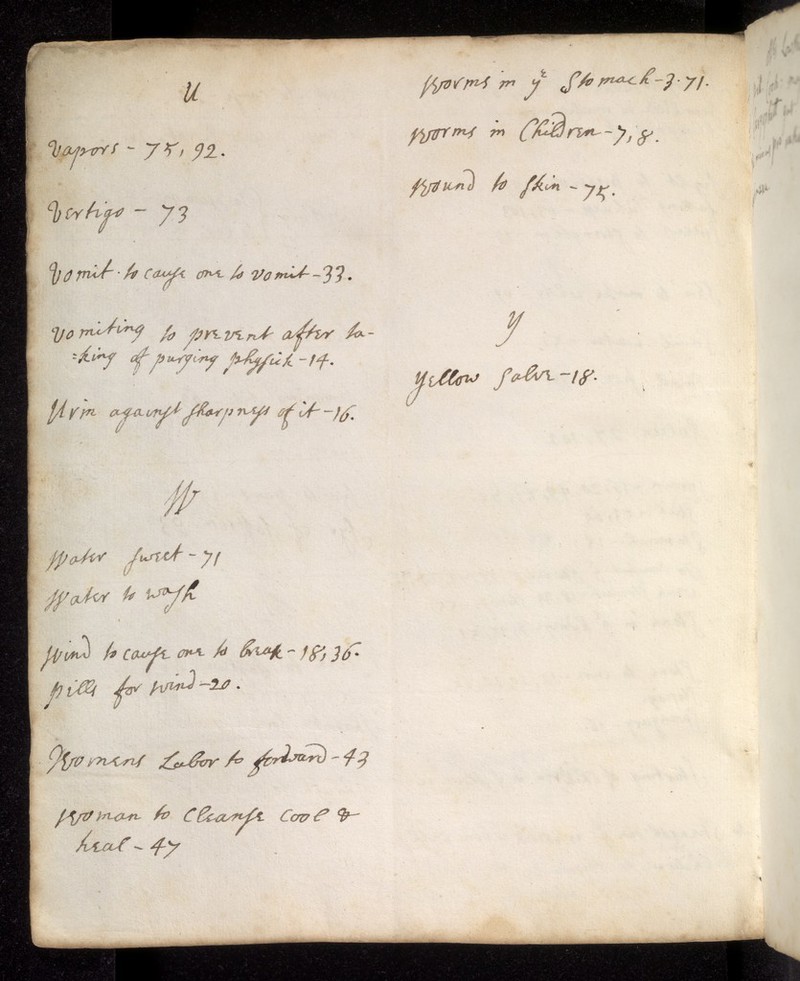 U
Vapors - 75, 92.
Vertigo - 73
Vomit. to cause one to vomit - 33.
Vomiting to prevent after ta-
=king of purging physick - 14.
Urin against sharpness of it - 16.
W
Water sweet - 71
Water to wash
Wind to cause one to break - 18, 36.
pills for wind - 20.
Womens Labor to forward - 43
Woman to Cleanse Cool &
heal - 47
Worms in ye Stomach - 3. 71.
Worms in Children - 7, 8.
Wound to skin - 75.
Y
Yellow Salve - 18.